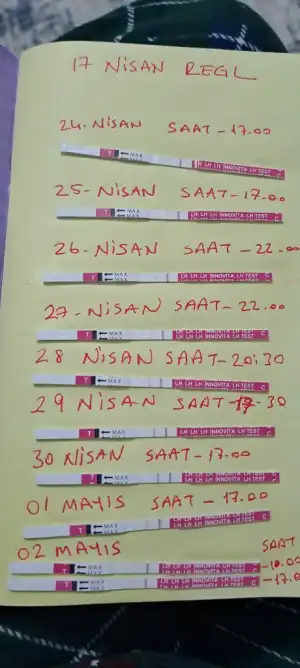 17 NİSAN REGL
24-NİSAN SAAT-17.00
T ←MAX LH LH INNOVITA LH TEST C
25-NİSAN SAAT-17.00
T ←MAX LH LH LH INNOVITA LH TEST C
26-NİSAN SAAT-22.00
T ←MAX LH LH LH INNOVITA LH TEST C
27-NİSAN SAAT-22.00
T ←MAX LH LH LH INNOVITA LH TEST C
28 NİSAN SAAT-20:30
T ←MAX LH LH LH INNOVITA LH TEST C
29 NİSAN SAAT-17-30
T ←MAX LH LH LH INNOVITA LH TEST C
30 NİSAN SAAT-17.00
T ←MAX LH LH LH INNOVITA LH TEST C
01 MAYIS SAAT-17.00
T ←MAX LH LH LH INNOVITA LH TEST C
02 MAYIS SAAT
T ←MAX LH LH LH INNOVITA LH TEST C
T ←MAX LH LH LH INNOVITA LH TEST C -17.0